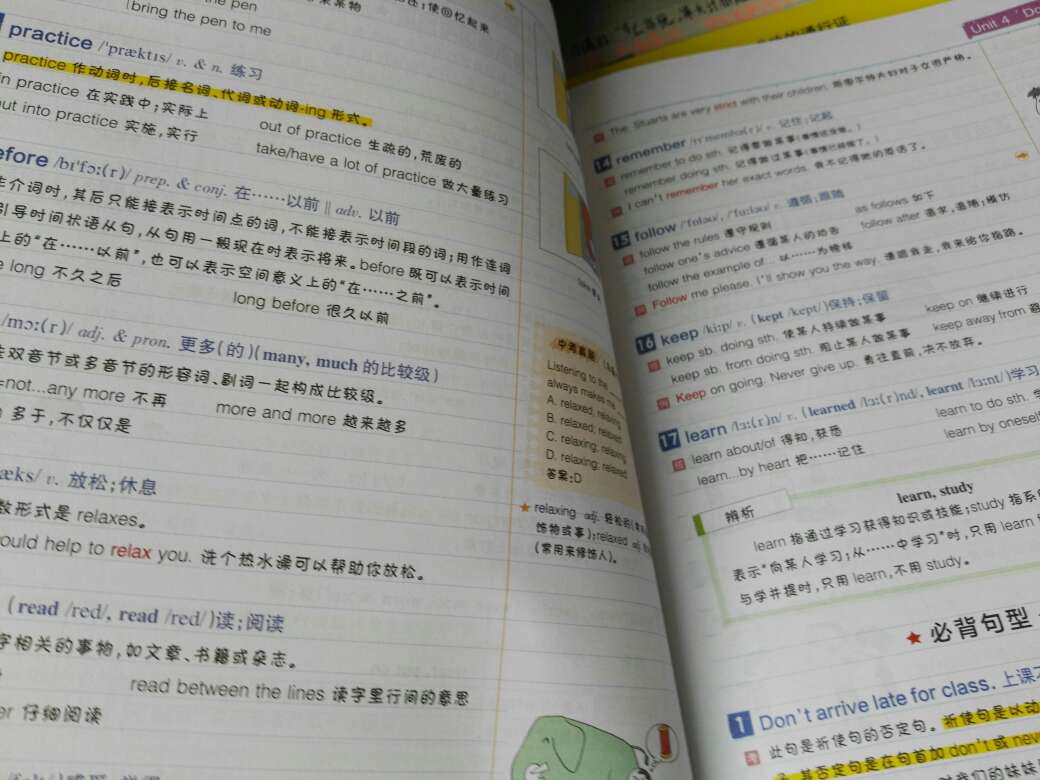 the pen
bring the pen to me
practice /'præktɪs/ v. & n. 练习
practice 作动词时,后接名词、代词或动词-ing 形式。
in practice 在实践中;实际上
out of practice 生疏的,荒废的
put into practice 实施,实行
take/have a lot of practice 做大量练习
before /bɪ'fɔː(r)/ prep. & conj. 在……以前 || adv. 以前
介词时,其后只能接表示时间点的词,不能接表示时间段的词;用作连词
引导时间状语从句,从句用一般现在时表示将来。before 既可以表示时间
上的“在……以前”,也可以表示空间意义上的“在……之前”。
long 不久之后
long before 很久以前
/mɔː(r)/ adj. & pron. 更多(的)(many, much 的比较级)
双音节或多音节的形容词、副词一起构成比较级。
=not...any more 不再
more and more 越来越多
多于,不仅仅是
v. 放松;休息
数形式是 relaxes。
would help to relax you. 洗个热水澡可以帮助你放松。
(read /red/, read /red/)读;阅读
字相关的事物,如文章、书籍或杂志。
read between the lines 读字里行间的意思
仔细阅读
中考真题
Listening to the
always makes me
A. relaxed; relaxing
B. relaxed; relaxed
C. relaxing; relaxing
D. relaxing; relaxed
答案:D
★ relaxing adj. 轻松的
饰物或事);relaxed adj.
(常用来修饰人)。
Unit 4
The Stuarts are very strict with their children.
14 remember v. 记住;记起
remember to do sth. 记得要做某事
remember doing sth. 记得做过某事
I can't remember her exact words. 我不记得她的原话了。
15 follow v. 遵循;跟随
follow the rules 遵守规则
as follows 如下
follow one's advice 遵循某人的劝告
follow after 追求,追随;模仿
follow the example of... 以……为榜样
Follow me please. I'll show you the way. 请跟我走,我来给你指路。
16 keep /kiːp/ v. (kept /kept/)保持;保留
keep sb. doing sth. 使某人持续做某事
keep on 继续进行
keep sb. from doing sth. 阻止某人做某事
keep away from
Keep on going. Never give up. 勇往直前,决不放弃。
17 learn /lɜː(r)n/ v. (learned /lɜː(r)nd/, learnt /lɜːnt/)学习
learn about/of 得知,获悉
learn to do sth.
learn...by heart 把……记住
learn by oneself
辨析
learn, study
learn 指通过学习获得知识或技能;study 指系
表示“向某人学习;从……中学习”时,只用 learn
与学并提时,只用 learn,不用 study。
★ 必背句型
1 Don't arrive late for class. 上课不
此句是祈使句的否定句。祈使句是以动
其否定句是在句首加 don't 或 never